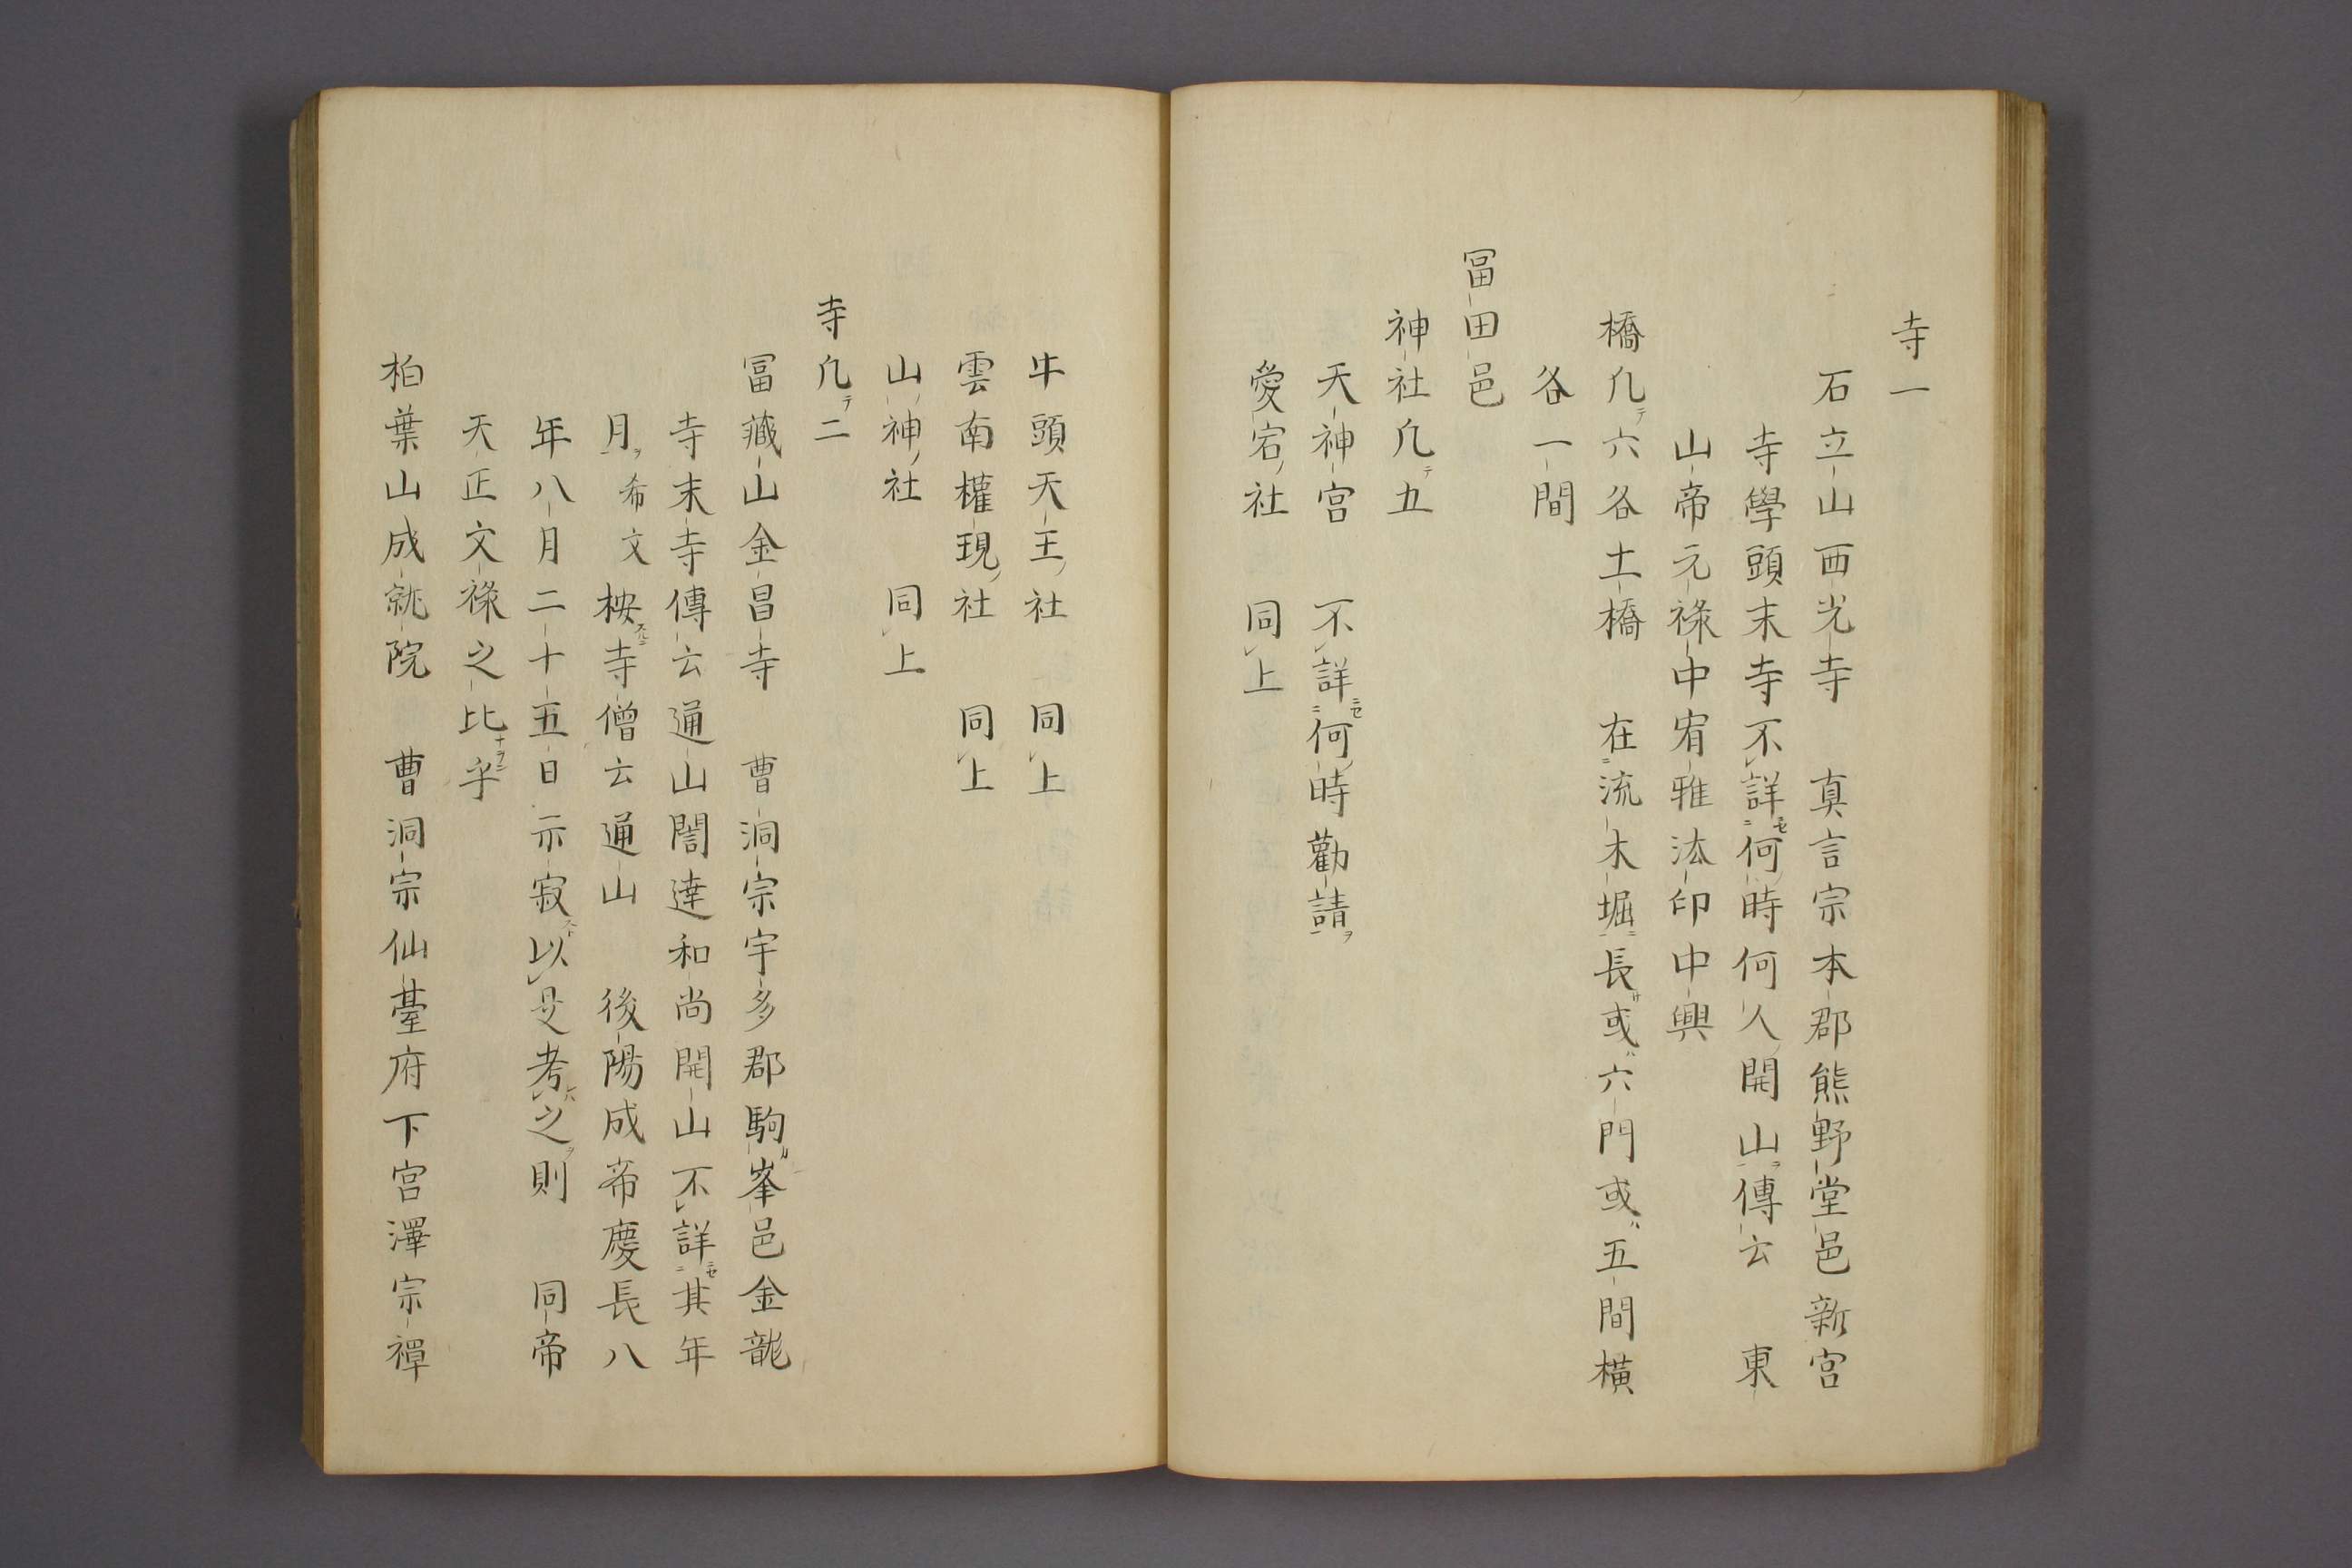 寺一
石立山西光寺　真言宗本郡熊野堂邑新宮
寺學頭末寺不詳何時何人開山傳云　東
山帝元祿中宥雅法印中興
橋凢六各土橋　在流木堀長或六門或五間橫
各一間
冨田邑
神社凢五
天神宮　不詳何時勸請
愛宕社　同上
牛頭天王社　同上
雲南權現社　同上
山神社　同上
寺凢二
冨藏山金昌寺　曹洞宗宇多郡駒峯邑金龍
寺末寺傳云通山誾達和尚開山不詳其年
月希文桉寺僧云通山　後陽成帝慶長八
年八月二十五日示寂以是考之則　同帝
天正文祿之比乎
柏葉山成就院　曹洞宗仙臺府下宮澤宗禪